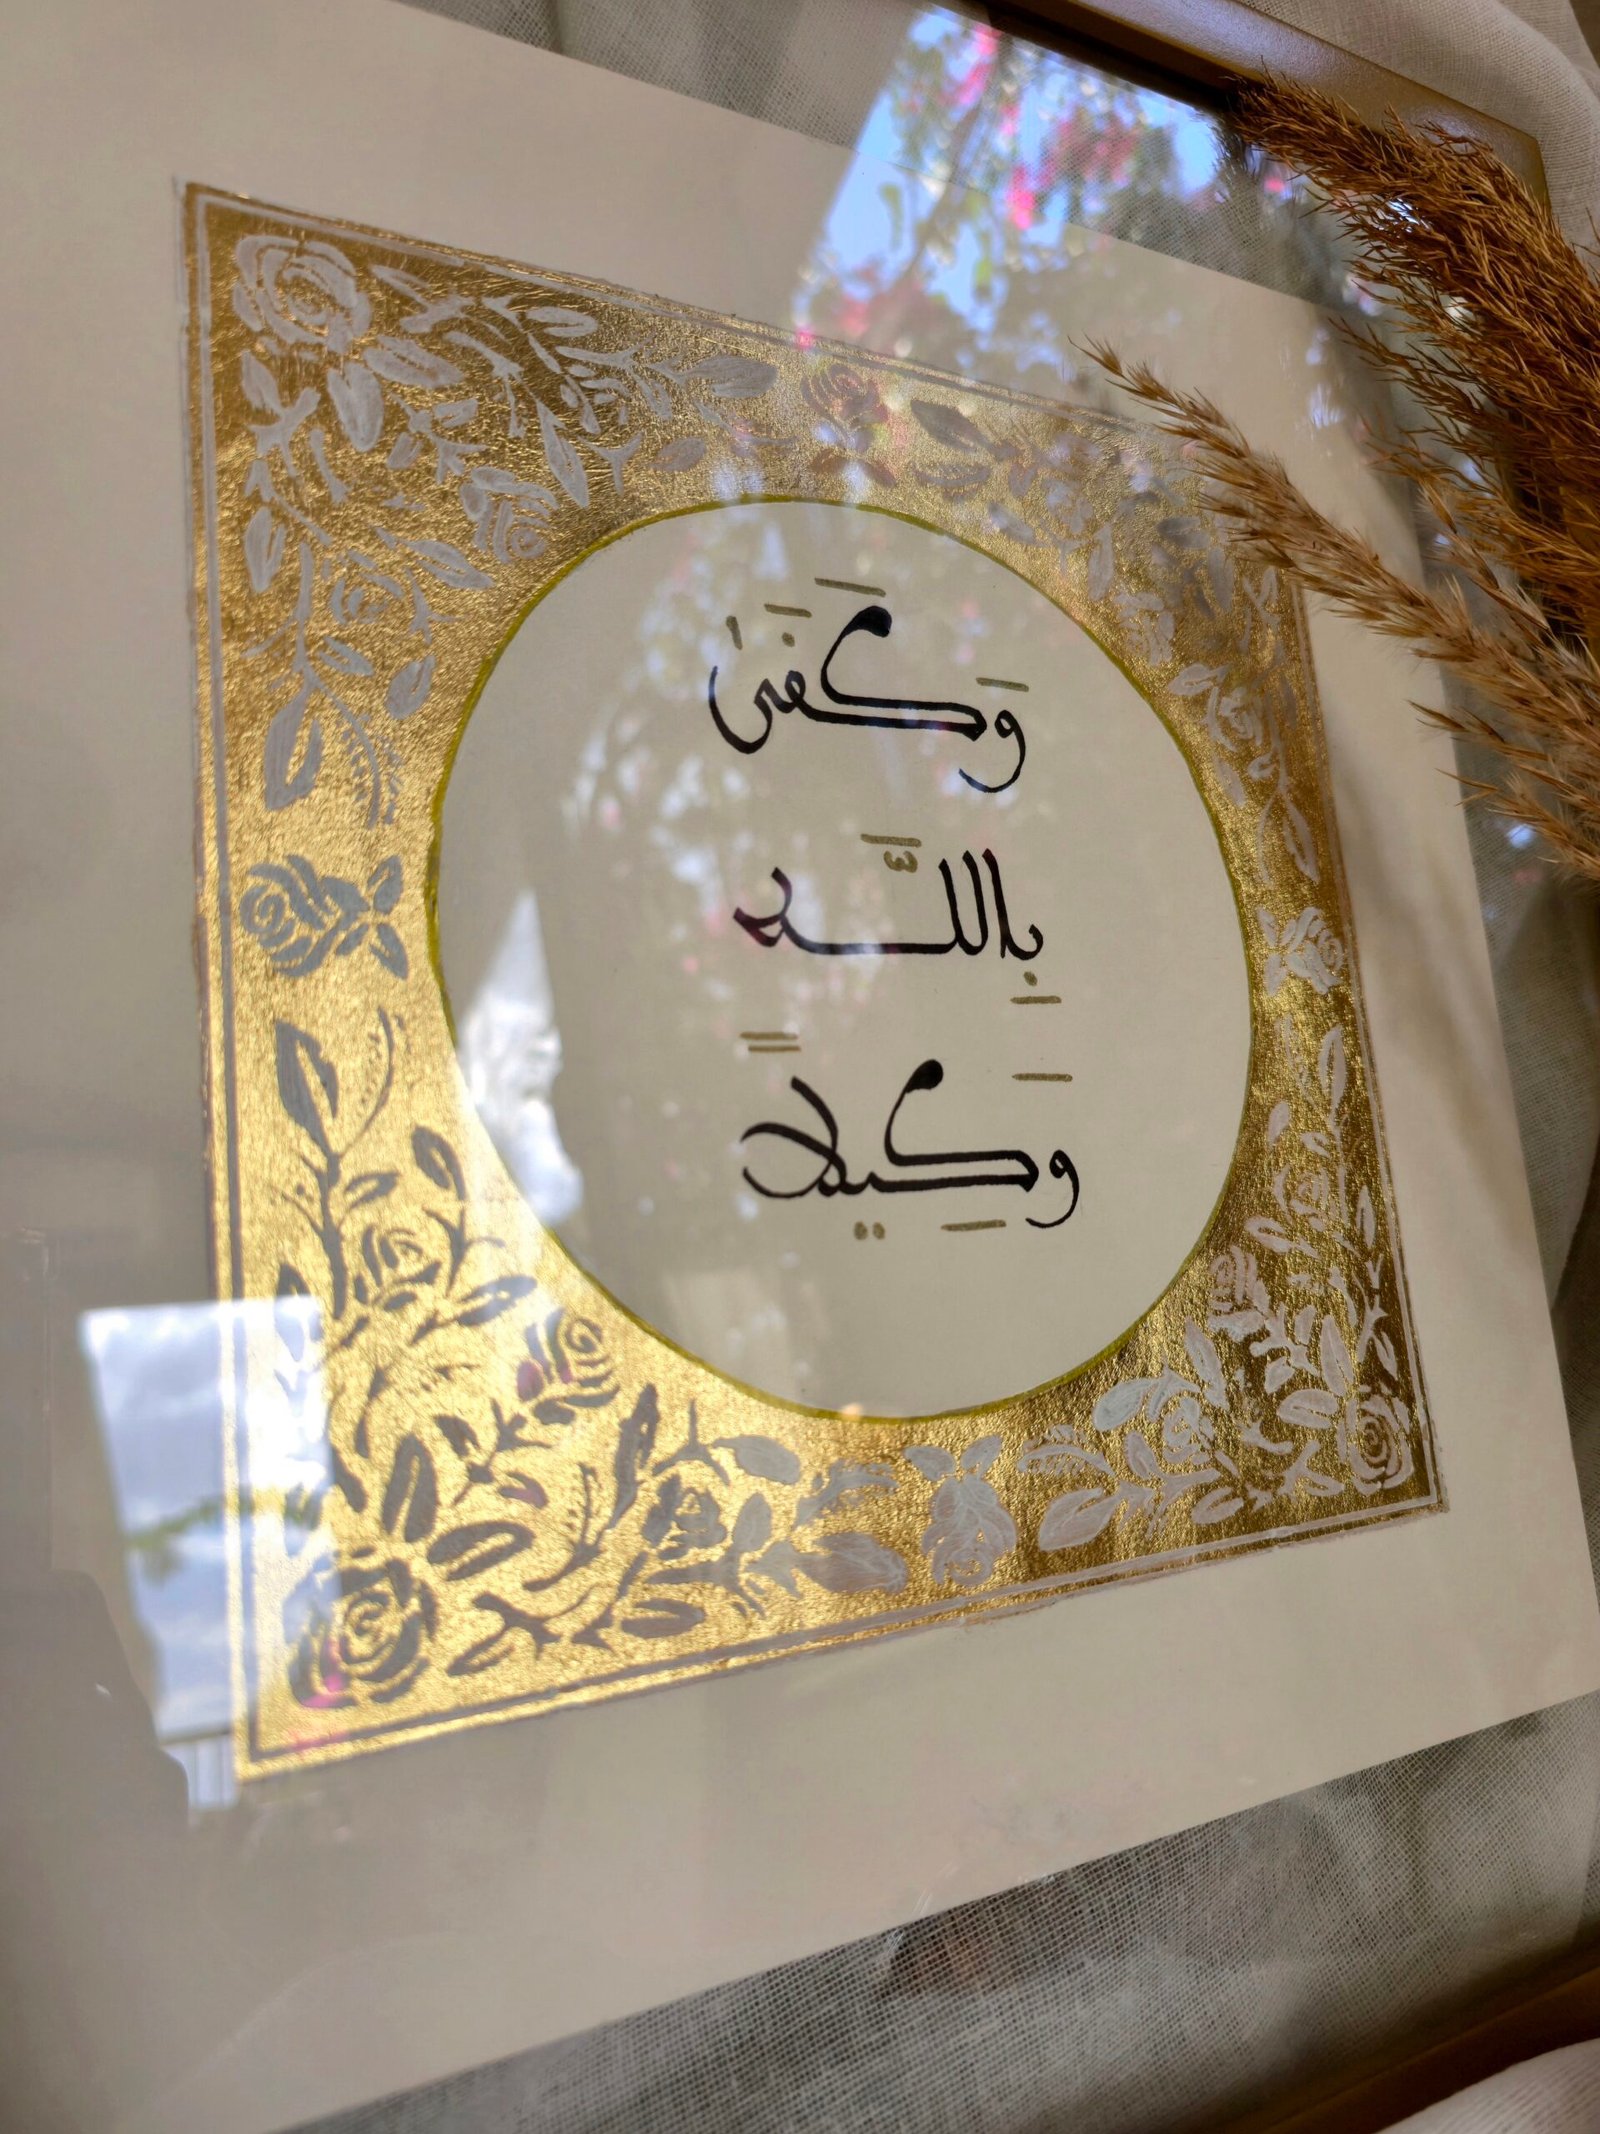 وَكَفَىٰ
بِاللَّهِ
وَكِيلاً